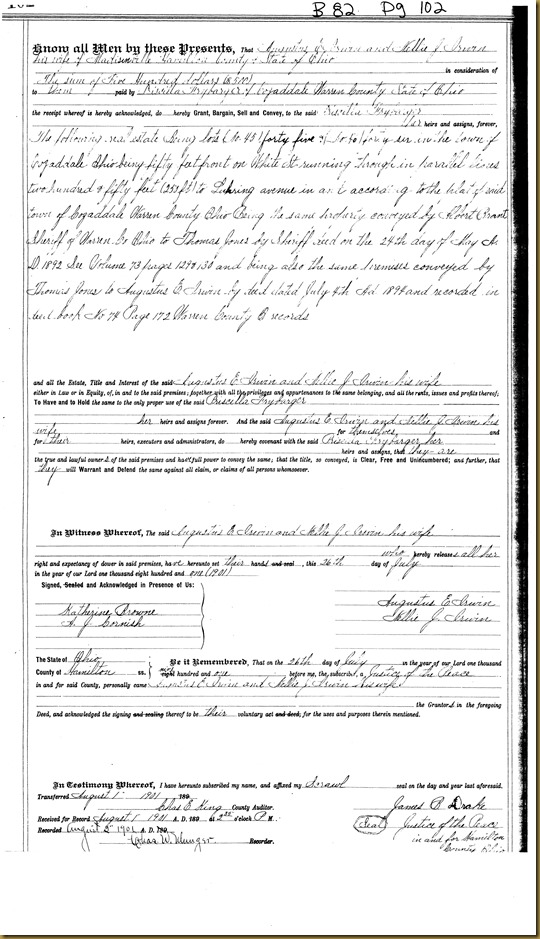 B 82 Pg 102
Know all Men by these Presents, That Augustus E. Irwin and Nellie J. Irwin
his wife of Madisonville Hamilton County & State of Ohio
in consideration of
The sum of Five Hundred dollars ($500)
to them paid by Priscilla Frybarger of Cozaddale Warren County State of Ohio
the receipt whereof is hereby acknowledged, do hereby Grant, Bargain, Sell and Convey, to the said Priscilla Frybarger
her heirs and assigns, forever,
The following real estate Being lots No 45 (forty five & No 46) forty six in the town of
Cozaddale Ohio being fifty feet front on White St running through in parallel lines
two hundred & fifty feet to avenue in and according to the plat of said
town of Cozaddale Warren County Ohio Being the same property conveyed by Albert Brant
Sheriff of Warren Co Ohio to Thomas Jones by Sheriff deed on the 24th day of May A.
D. 1892 See Volume 73 pages 129 & 130 and being also the same premises conveyed by
Thomas Jones to Augustus E. Irwin by deed dated July 4th Ad 1894 and recorded in
deed book No 74 Page 172 Warren County O records
and all the Estate, Title and Interest of the said Augustus E Irwin and Nellie J. Irwin his wife
either in Law or in Equity, of, in and to the said premises; together with all the privileges and appurtenances to the same belonging, and all the rents, issues and profits thereof;
To Have and to Hold the same to the only proper use of the said Priscilla Frybarger
her heirs and assigns forever. And the said Augustus E Irwin and Nellie J. Irwin his
wife for themselves and
for their heirs, executors and administrators, do hereby covenant with the said Priscilla Frybarger, her
heirs and assigns, that they are
the true and lawful owners of the said premises and have full power to convey the same; that the title, so conveyed, is Clear, Free and Unincumbered; and further, that
they will Warrant and Defend the same against all claim, or claims of all persons whomsoever.
In Witness Whereof, The said Augustus E Irwin and Nellie J. Irwin his wife
who hereby releases all her
right and expectancy of dower in said premises, have hereunto set their hands and seal, this 26th day of July
in the year of our Lord one thousand eight hundred and one (1901)
Signed, Sealed and Acknowledged in Presence of Us:
Augustus E Irwin
Katherine Browne
Nellie J. Irwin
A. J. Cornish
The State of Ohio
County of Hamilton ss.
Be it Remembered, That on the 26th day of July in the year of our Lord one thousand
eight nine hundred and one before me, the subscriber, a Justice of the Peace
in and for said County, personally came Augustus E Irwin and Nellie J. Irwin his wife
the Grantors in the foregoing
Deed, and acknowledged the signing and sealing thereof to be their voluntary act and deed, for the uses and purposes therein mentioned.
In Testimony Whereof, I have hereunto subscribed my name, and affixed my Scrawl seal on the day and year last aforesaid.
Transferred August 1 1901 189
James B Drake
Chas E King County Auditor.
Received for Record August 1 1901 A. D. 189 at 2 o'clock P M.
Seal
Justice of the Peace
Recorded August 2 1901 A. D. 189
in and for Hamilton
Chas W. Munger Recorder.
County Ohio